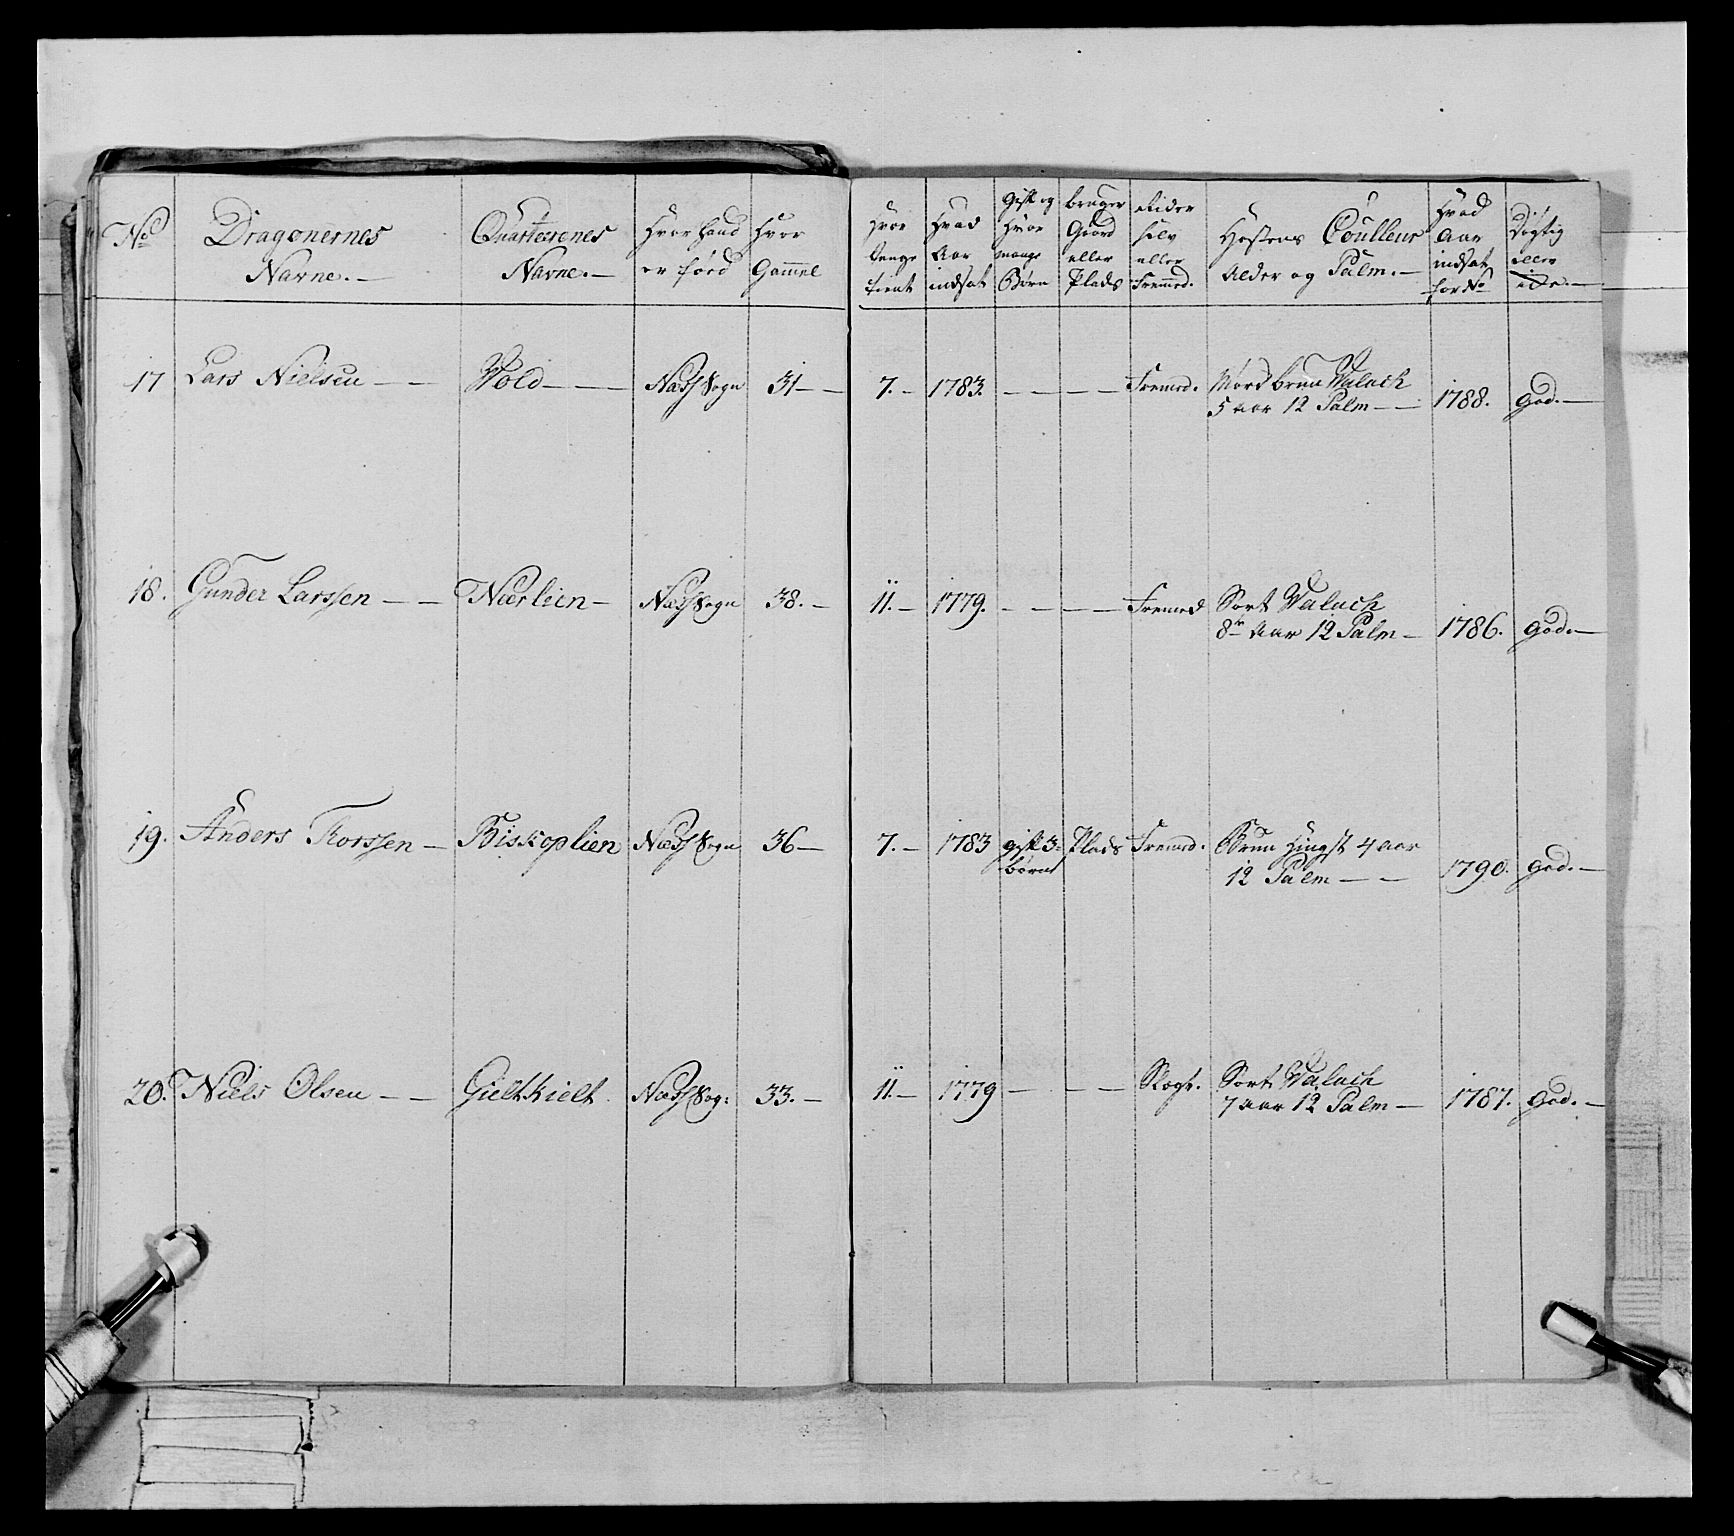 No Dragonernes Navne.- Quarterenes Navne.- Hvor hand er föed Hvor Gammel Hvor lenge tient Hvad Aar indsat Gift og Hvor mange Börn bruger Gaard eller Plads Rider selv eller Fremed. Hestens Coulleur Alder og Palm.- Hvad Aar indsat for No Dögtig eller icke.-
17 Lars Nielsen - - Wold - - - Næss Sogn 31 - - 7.- 1783. - - - - Fremed. Mörd brun Walach
5 aar 12 Palm - - 1788. God.-
18. Gunder Larssen - - Nærlien - Næss Sogn 38.- 11.- 1779. - - - - Fremed Sort Walach
8te Aar 12 Palm - 1786. God.-
19. Anders Torssen - Biskoplien Næss Sogn 36 - 7.- 1783 gift 3 Plads Fremed. Brun Hingst 4 aar
börn 12 Palm - - 1790. God.-
20. Niels Olsen - - Gieltkielt. Næss Sog: 33.- 11.- 1779 - - - Sort Walach
7 aar 12 Palm - 1787. God.-